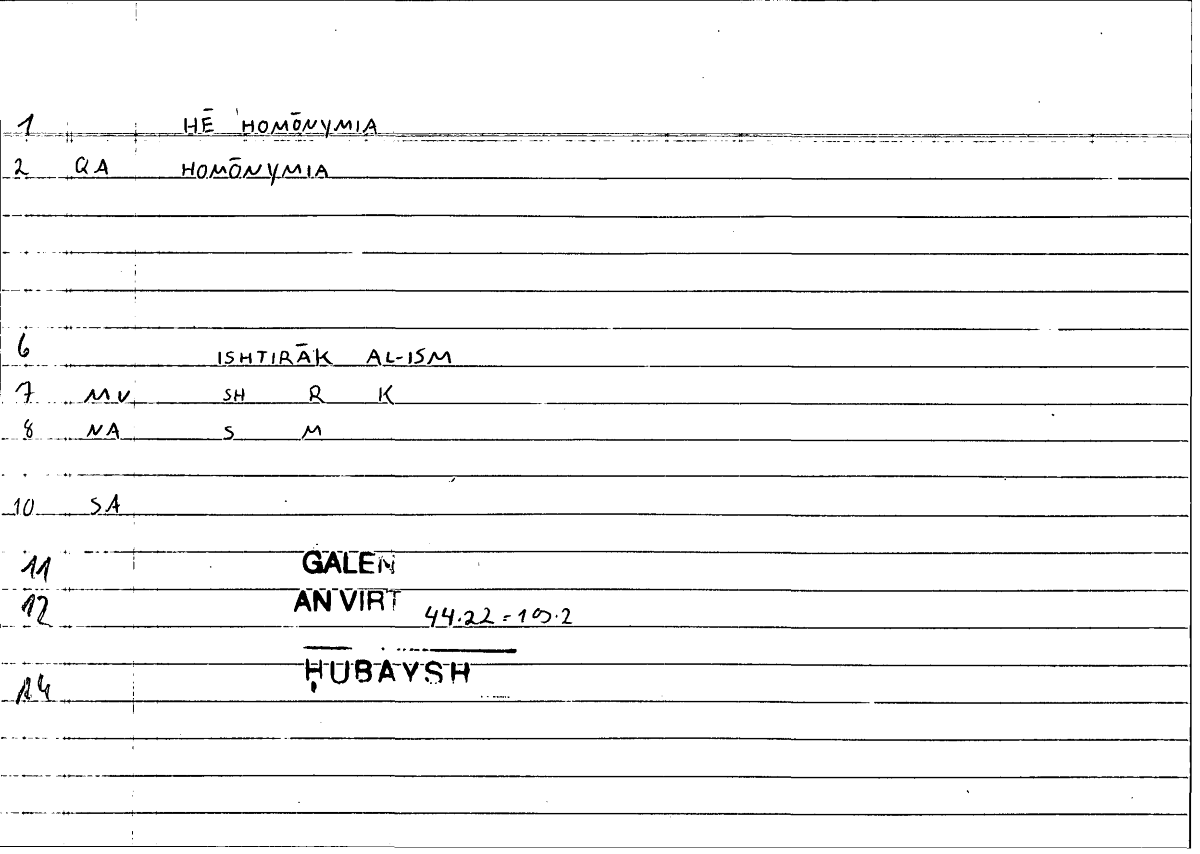 1 HĒ 'HOMŌNYMIA
2 QA HOMŌNYMIA
6 ISHTIRĀK AL-ISM
7 MV SH R K
8 NA S M
10 SA
11 GALEN
12 AN VIRT 44.22 = 10.2
14 ḤUBAYSH